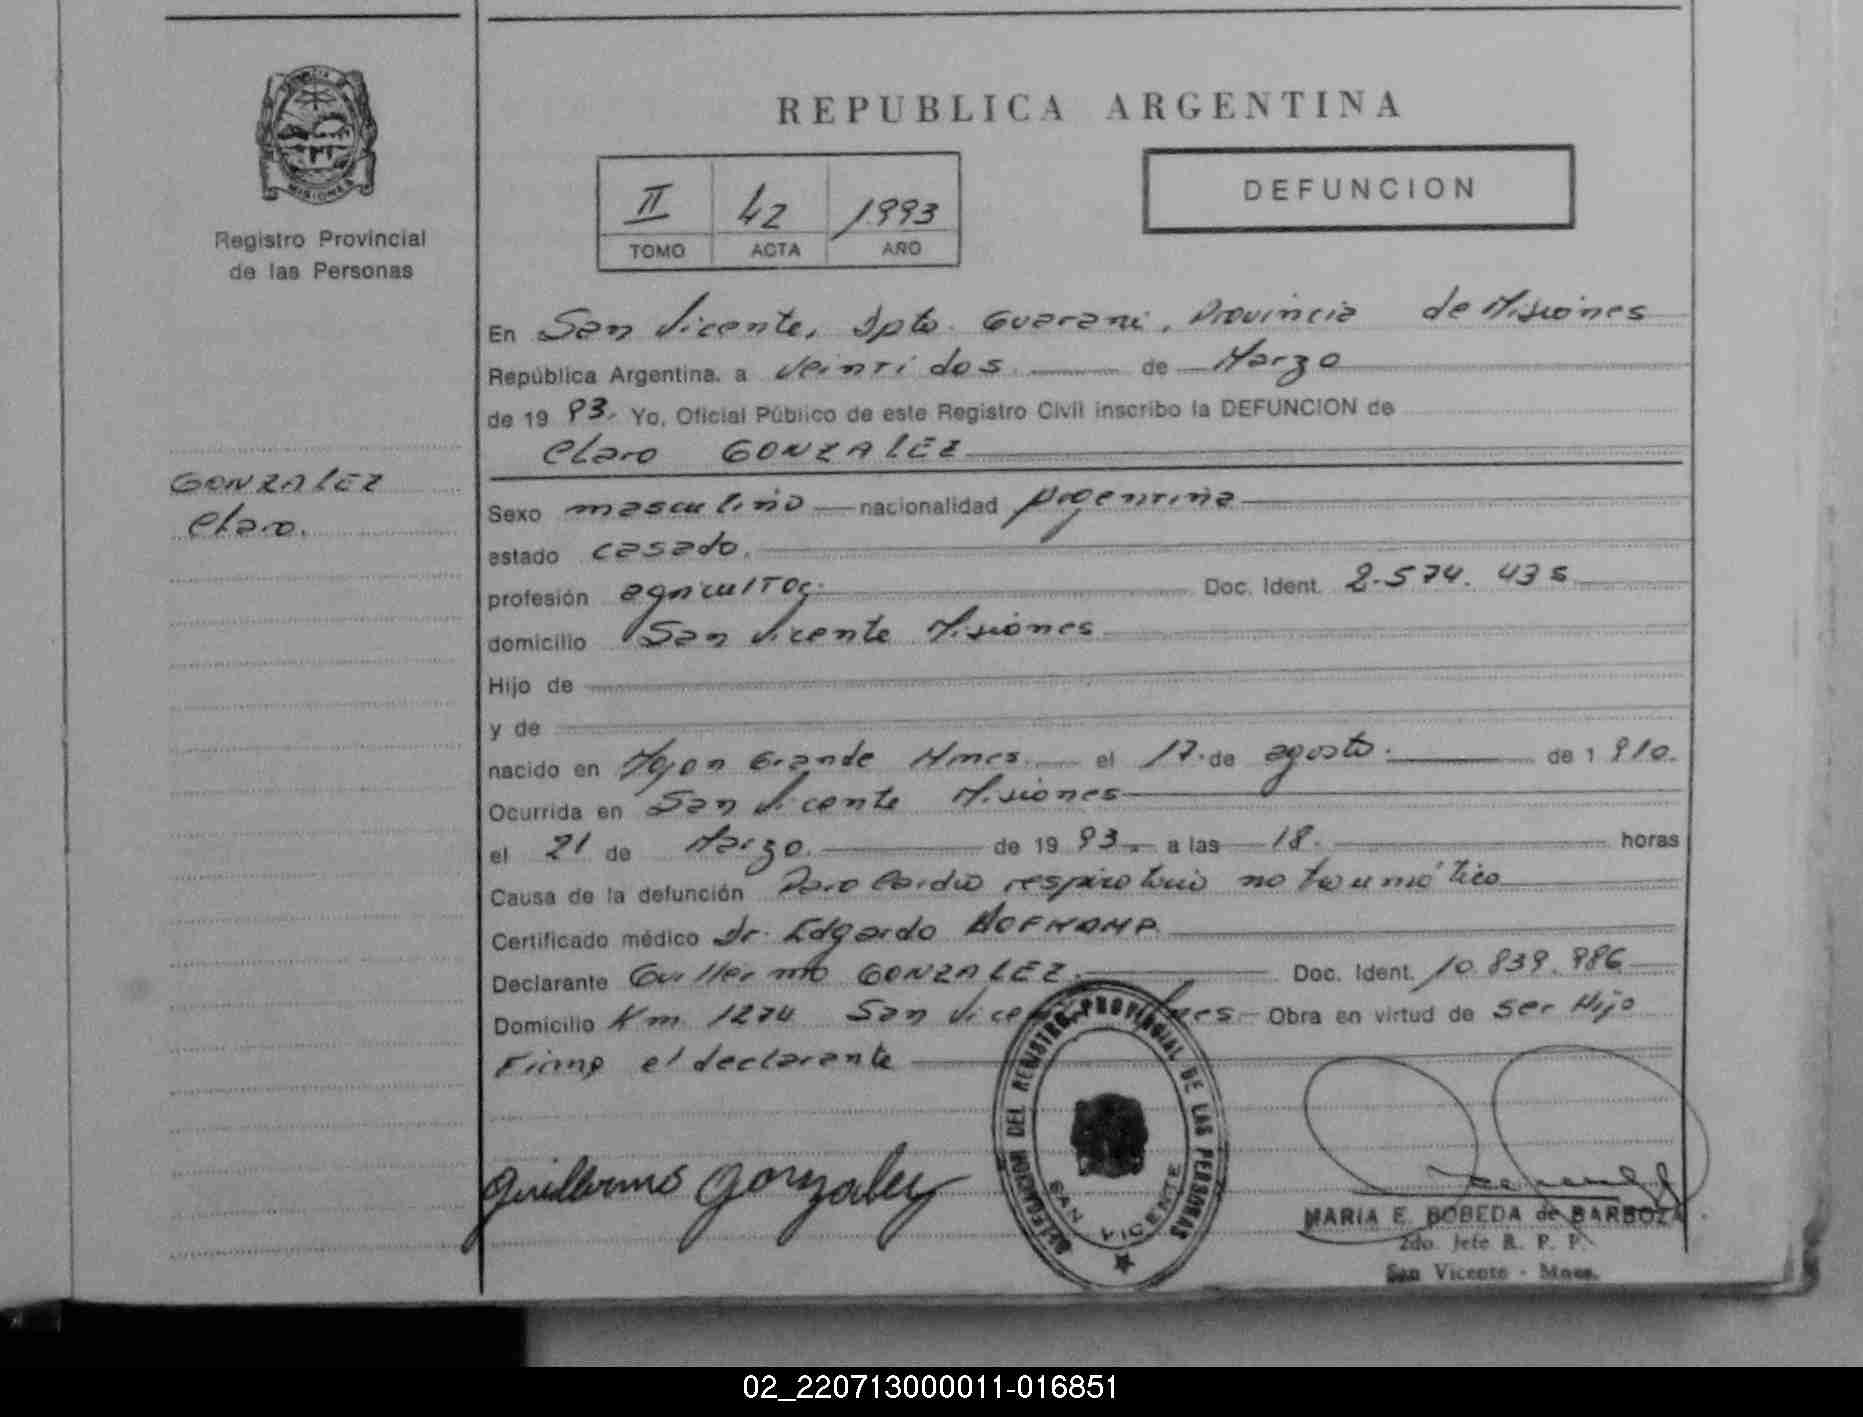 REPUBLICA ARGENTINA
MISIONES
Registro Provincial
de las Personas
II 42 1993
TOMO ACTA AÑO
DEFUNCION
En San Vicente, Dpto. Guarani, Provincia de Misiones
República Argentina, a veinti dos de Marzo
de 19 93. Yo, Oficial Público de este Registro Civil inscribo la DEFUNCION de
Claro GONZALEZ
GONZALEZ
Claro.
Sexo masculino nacionalidad Argentina
estado casado.
profesión agricultor. Doc. Ident. 2.574.435
domicilio San Vicente Misiones
Hijo de
y de
nacido en Mnes. el 17 de agosto. de 1 910.
Ocurrida en San Vicente Misiones
el 21 de Marzo. de 19 93. a las 18. horas
Causa de la defunción Paro Cardio respiratorio no traumático
Certificado médico Dr. Edgardo
Declarante Guillermo GONZALEZ. Doc. Ident. 10.839.986
Domicilio Km 1274 San Vicente Mnes Obra en virtud de ser Hijo
Firma el declarante
Guillermo Gonzalez
DELEGACION DEL REGISTRO PROVINCIAL DE LAS PERSONAS
SAN VICENTE
MARIA E. BOBEDA de BARBOZA
2do. Jefe R. P. P.
San Vicente - Mnes.
02_220713000011-016851